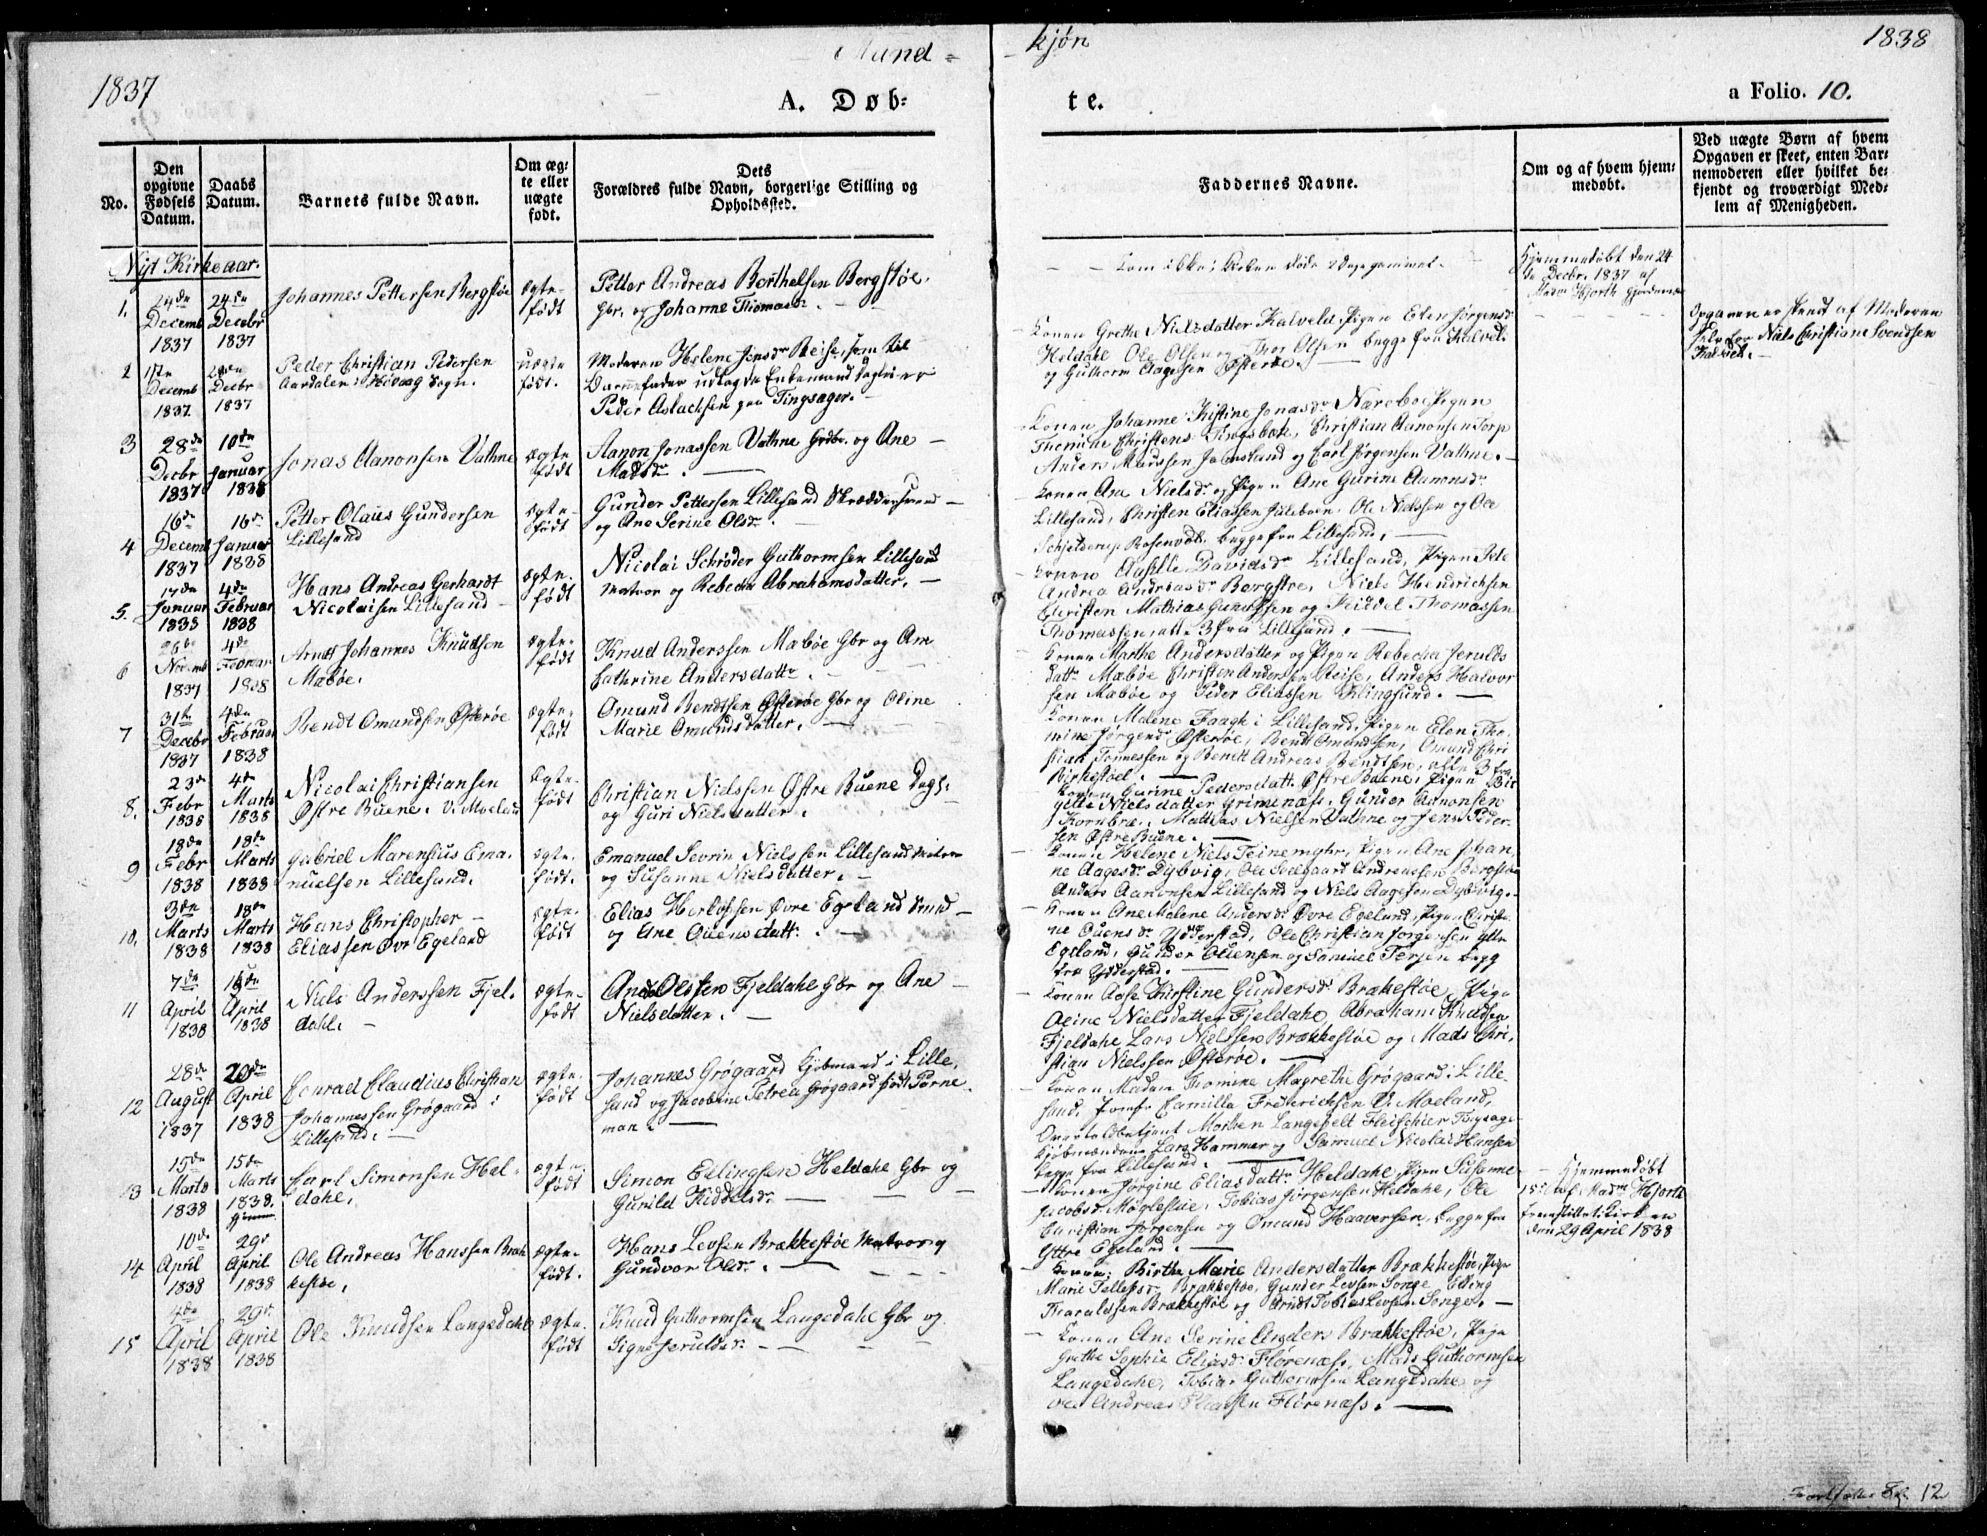 Mand-
kjøn
1837
1838
A. Døb-
te.
a Folio. 10.
No.
Den opgivne Fødsels Datum.
Daabs Datum.
Barnets fulde Navn.
Om ægte eller uægte født.
Dets Forældres fulde Navn, borgerlige Stilling og Opholdssted.
Faddernes Navne.
Om og af hvem hjemmedøbt.
Ved uægte Børn af hvem Opgaven er skeet, enten Barnemoderen eller hvilket bekjendt og troværdigt Medlem af Menigheden.
Nyt Kirkeaar.
1. 24de Decemb 1837
24de Decebr 1837
Johannes Pettersen Bergstøe
Ægte født
Petter Andreas Berthelsen Bergstøe,
Gbr. og Johanne Thomasdr.
Kom ikke i Kirken døde 2 Dage gammel.
Hjemmedøbt den 24
de Decbr. 1837 af
Mdm Hjorth
2 Decemb 1837
Decbr 1837
Petter Christian Pedersen
Aardalen i Høivaag Sogn.
uægte født.
Moderen Helene Jensdr Reise, som til
Barnefader udlagde Enkemand
Peder Aslachsen paa Tingsager.
Konen Grethe Nielsdatter Kalvehd, Pigen Elen Jørgensdr
Heldahl Ole Olsen og Thor Olsen begge fra Kalvel.
og Guthorm Aagesen Østerøe.
Opgaven er skeet af Moderen
selv for Niels Christian Svendsen
3 28de Decbr 1837
10de Januar 1838
Jonas Aanonsen Vathne
Ægte født
Aanon Jonassen Vathne Grdbr. og Ane
Madsdr.
Konen Johanne Kistine Jonasdr Næreboe, Pigen
Christian Aanonsen Torp
Anders Madssen og Carl Jørgensen Vathne.
4 16de Decemb 1837
16de Januar 1838
Petter Olaus Gundersen
Lillesand
Ægte født
Gunder Pettersen Lillesand Skrædder
og Ane Serine Olsdr.
Konen Ane Nielsdr og Pigen Ane Gurine Aanonsdr
Lillesand, Christen Eliassen Ole Nielsen og Ole
begge fra Lillesand.
5. 17de Januar 1838
4de Februar 1838
Hans Andreas Gerhardt
Nicolaisen Lillesand
Ægte født
Nicolai Schrøder Guthormsen Lillesand
Matros og Rebecka Abrahamsdatter.
Konen Davidsdr Lillesand, Pigen
Andrea Andreasdr Bergstøe, Niels Hendrichsen
Christen Mathias og Kiddel Thomassen
Thomassen, alle 3 fra Lillesand.
6 26de Novemb 1837
4de Februar 1838
Arndt Johannes Knudsen
Mæbøe.
Ægte født
Knud Anderssen Mæbøe Gbr og An
Cathrine Andersdatter.
Konen Marthe Andersdatter og Pigen Rebecka Jerulds
datter Mæbøe Christen Andersen Reise, Anders Halvor
sen Mæbøe og Peder Eliassen
7 31te Decebr 1837
4de Februar 1838
Bendt Omundsen Østerøe
Ægte født
Omund Bendtsen Østerøe Gbr og Oline
Marie Omundsdatter.
Konen Malene i Lillesand, Pigen Elen Tho-
mine Jørgensdr Østerøe, Bendt Omundsen, Omund Chri
stian Tønnessen og Bendt Andreas Bendtsen, alle 3 fra
Birkestøel.
8. 23de Febr 1838
4de Marts 1838
Nicolai Christiansen
Østre Buene. V. Moeland
Ægte født
Christian Nielssen Østre Buene
og Guri Nielsdatter.
Konen Gurine Pedersdatt. Østre Buene, Pigen Bir
gitte Nielsdatter Grimenæs, Gunder Aanonsen
Kornbræ. Mathias Nielsen Vathne og Jens Peder-
sen Østre Buene.
9 18de Febr 1838
18de Marts 1838
Gabriel Marensius Ema-
nuelsen Lillesand.
Ægte født.
Emanuel Sevrin Nielssen Lillesand Matros
og Susanne Nielsdatter.
Konen Helene Niels Pigen Ane Johan
ne Aagesdr Dybvig, Ole Andreassen Bergstøe
Anders Aanonsen Lillesand og Niels Aagesen Dybvig.
10. 3de Marts 1838
18de Marts 1838
Hans Christopher
Eliassen Øvre Egeland
Ægte født
Elias Herlofsen Øvre Egeland
og Ane Ouensdatt.
Konen Ane Malene Andersdr Øvre Egeland, Pigen Christi-
ne Ouensdr Ydderstad, Ole Christian Jørgensen Ytre
Egeland, Gunder Ouensen og Samuel Terjesen begge
fra Ydderstad.
11 7de April 1838
April 1838
Niels Anderssen Fjel-
dahl.
Ægte født
Anders Olsen Fjeldahl Gbr og Ane
Nielsdatter.
Konen Aase Kirstine Gundersdr Brækkestøe, Pigen
Nielsdatter Fjeldahl, Abraham Knudsen
Fjeldahl, Lars Nielssen Brækkestøe og Mads Chri-
stian Nielssen Østerøe.
12 28de August 1837
20de April 1838
Conrad Claudius Christian
Johannessen Grøgaard i
Lillesand.
Ægte født
Johannes Grøgaard Kjøbmand i Lille-
sand og Jacobine Petrea Grøgaard født Parne-
man.
Konen Madam Thomine Magrethe Grøgaard i Lille-
sand, Jomfr. Camilla Friderichsen V. Moeland,
Overtoldbetjent Morten Langefelt Fleischer Tingsager
Kjøbmændene Lars Hammer og Samuel Nicolai Hansen
begge fra Lillesand.
13 15de Marts 1838
15de Marts 1838. hjemm
Carl Simonsen Hel-
dahl.
Ægte født
Simon Ellingsen Heldahl Gbr og
Gunild Kiddelsdr.
Konen Jørgine Eliasdatt. Heldahl, Pigen Susanne
Jacobsdr Møglestue, Tobias Jørgensen Heldahl, Ole
Christian Jørgensen og Omund Haaversen, begge fra
Yttre Egeland.
Hjemmedøbt
15de af Madm Hjorth
fremstillet i Kirken
den 29 April 1838
14 10de April 1838
29de April 1838
Ole Andreas Hanssen Bræk
kestøe.
Ægte født.
Hans Levsen Brækkestøe Matros og
Gundvor Olsdr.
Konen Birthe Marie Andersdatter Brækkestøe, Pige
Marie Tellefsdr Brækkestøe, Gunder Levsen Songe, Elling
Tharaldssen Brækkestøe og Arndt Tobias Levsen Songe.
15 4de April 1838
29de April 1838
Ole Knudsen Langedahl
Ægte født
Knud Guthormsen Langedahl Gbr og
Signe Jeruldsdr.
Konen Ane Serine Anders Brækkestøe, Pige
Grethe Sophie Eliasdr Flørenæs, Mads Guthormsen
Langedahl, Tobias Guthormsen Langedahl og
Ole Andreas Eliassen Flørenæs.
Fortsættes Fol. 12